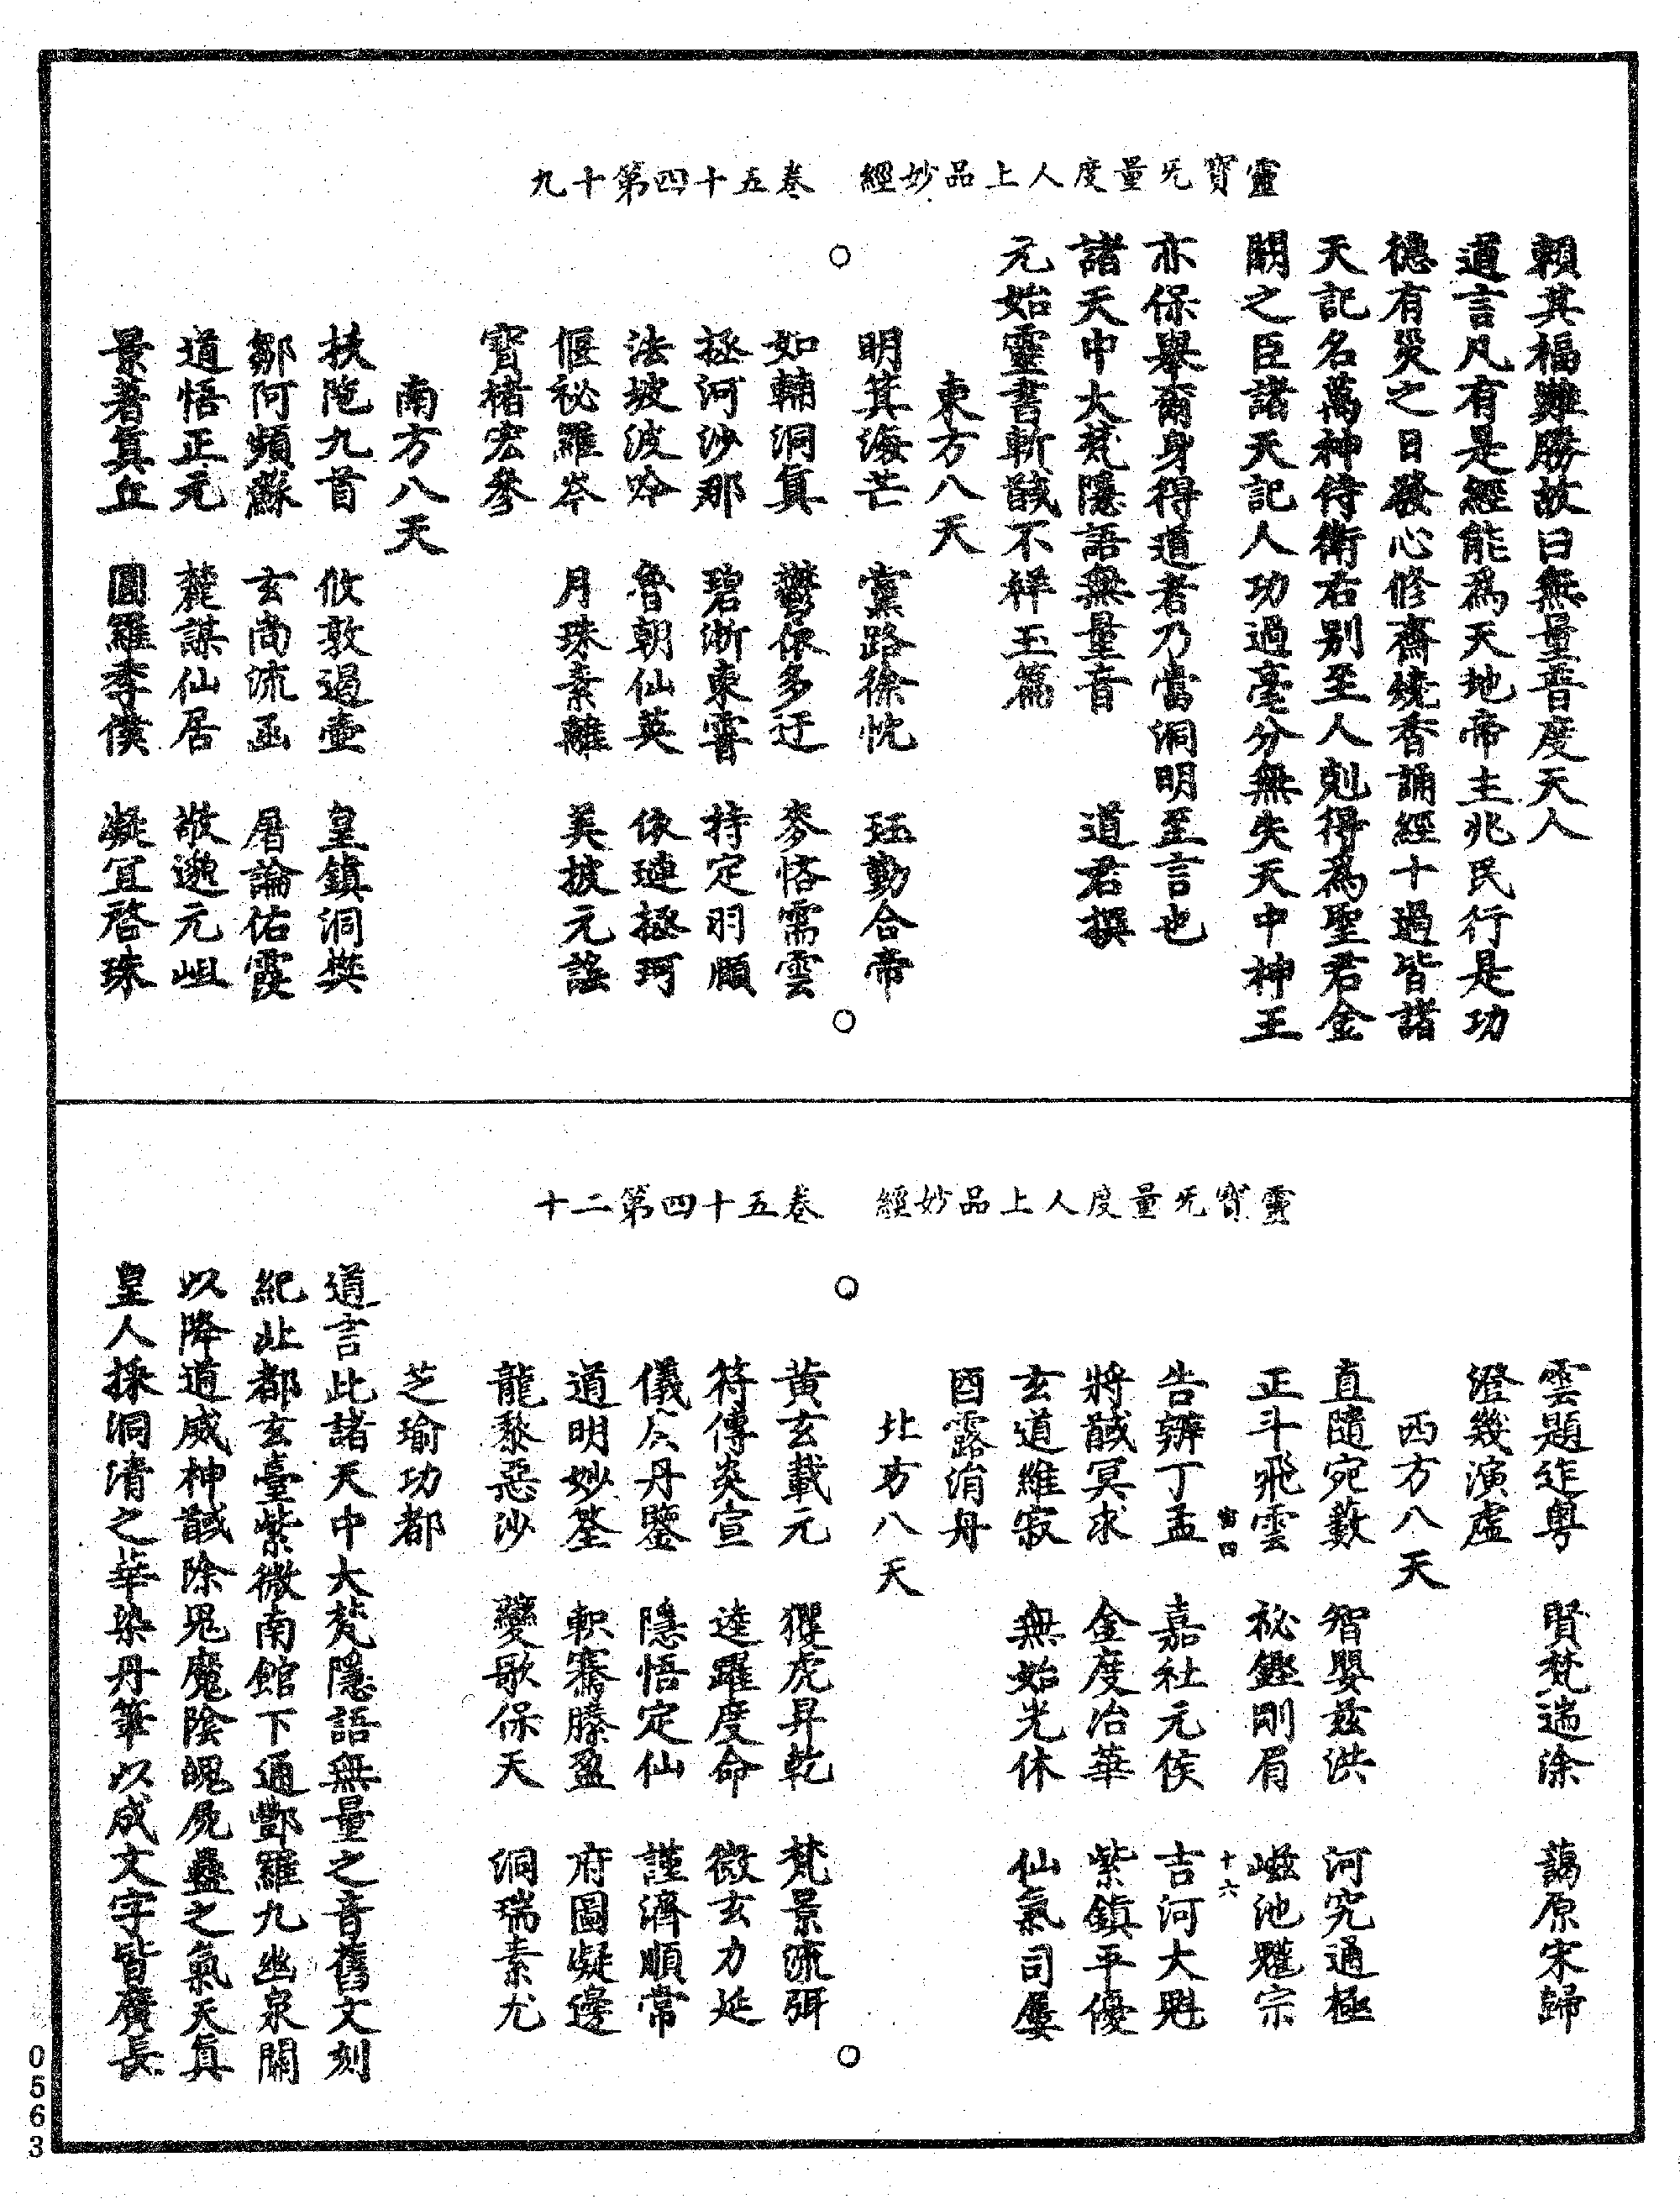 靈寶无量度人上品妙經　卷五十四第十九
賴其福難勝故曰無量普度天人
道言凡有是經能爲天地帝主兆民行是功
德有災之日發心修齋燒香誦經十過皆諸
天記名萬神侍衛右別至人剋得爲聖君金
闕之臣諸天記人功過毫分無失天中神王
亦保舉爾身得道者乃當洞明至言也
諸天中大梵隱語無量音　道君撰
元始靈書斬馘不祥玉篇
東方八天
明箕海芒　黨路徐忱　珏勤合帝
如輔洞真　鬱依多迂　麥恪霈雲
拯河沙那　碧浙東霄　持定明順
法坡波吟　魯朝仙英　依璉拯珂
偃祕羅岑　月珠素離　美披元謠
寳楮宏參
南方八天
扶陁九首　攸敦過壺　皇鎮洞焚
鄒阿頻蘇　玄尚流函　屠論佑霞
道悟正元　麓謀仙居　敬邈元岨
景著真丘　圓羅季僕　凝宜啓珠
靈寳无量度人上品妙經　卷五十四第二十
雲題迮粤　賢梵遄涂　藹原宋歸
澄幾演虛
西方八天
直隨宛藪　智嬰兹洪　河究通極
正斗飛雲　祕鏗剛眉　池𩲃宗
宙四　十六
告辦丁孟　嘉社元侯　吉河大魁
將馘冥求　金度冶華　紫鎮平優
玄道維寂　無始光休　仙氣司屢
酉露消丹
北方八天
黄玄載元　玃虎昇乾　梵景流弭
符傳炎宣　逵躍度命　微玄力延
儀仄丹鑒　隱悟定仙　謹濟順常
道明妙筌　軹騫滕盈　府圖凝邊
龍黎惡沙　夔歌保天　洞瑞素尤
芝瑜功都
道言此諸天中大梵隱語無量之音舊文刻
紀北都玄臺紫微南館下通酆羅九幽泉關
以降道威神馘除鬼魔陰魄屍蠱之氣天真
皇人採洞清之華染丹筆以成文字皆廣長
0563